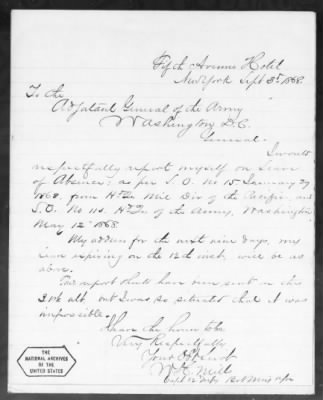 Fifth Avenue Hotel
New York Sept 3d 1868.
To the
Adjutant General of the Army
Washington D.C.
General.
I would
respectfully report myself on Leave
of Absence; as per S.O. No 15 January 29
1868. from Hd Qrs Mil Div of the Pacific, and
S.O. No 114 Hd Qrs of the Army, Washington
May 12" 1868
My address for the next nine days, my
leave expiring on the 12th inst, will be as
above.
This report should have been sent in the
ult, but I was so situated that it was
impossible.
I have the honor to be
Very Respectfully
Your Obt Servt
Capt 12 Infy Bvt Maj
THE
NATIONAL ARCHIVES
OF THE
UNITED STATES